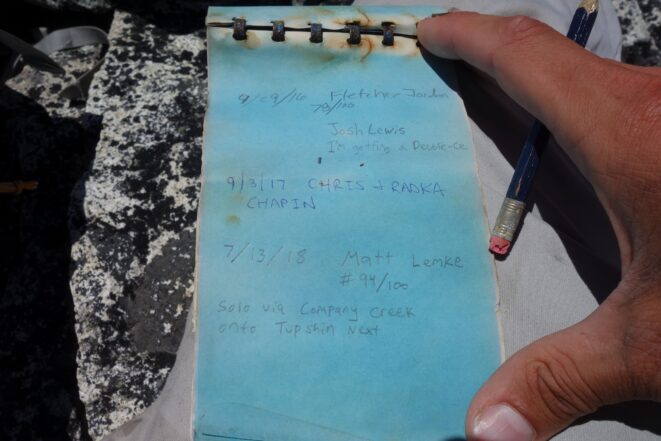 9/29/16 Fletcher Jordan
79/100
Josh Lewis
I'm getting a
9/3/17 CHRIS + RADKA
CHAPIN
7/13/18 Matt Lemke
#94/100
Solo via Company Creek
onto Tupshin Next